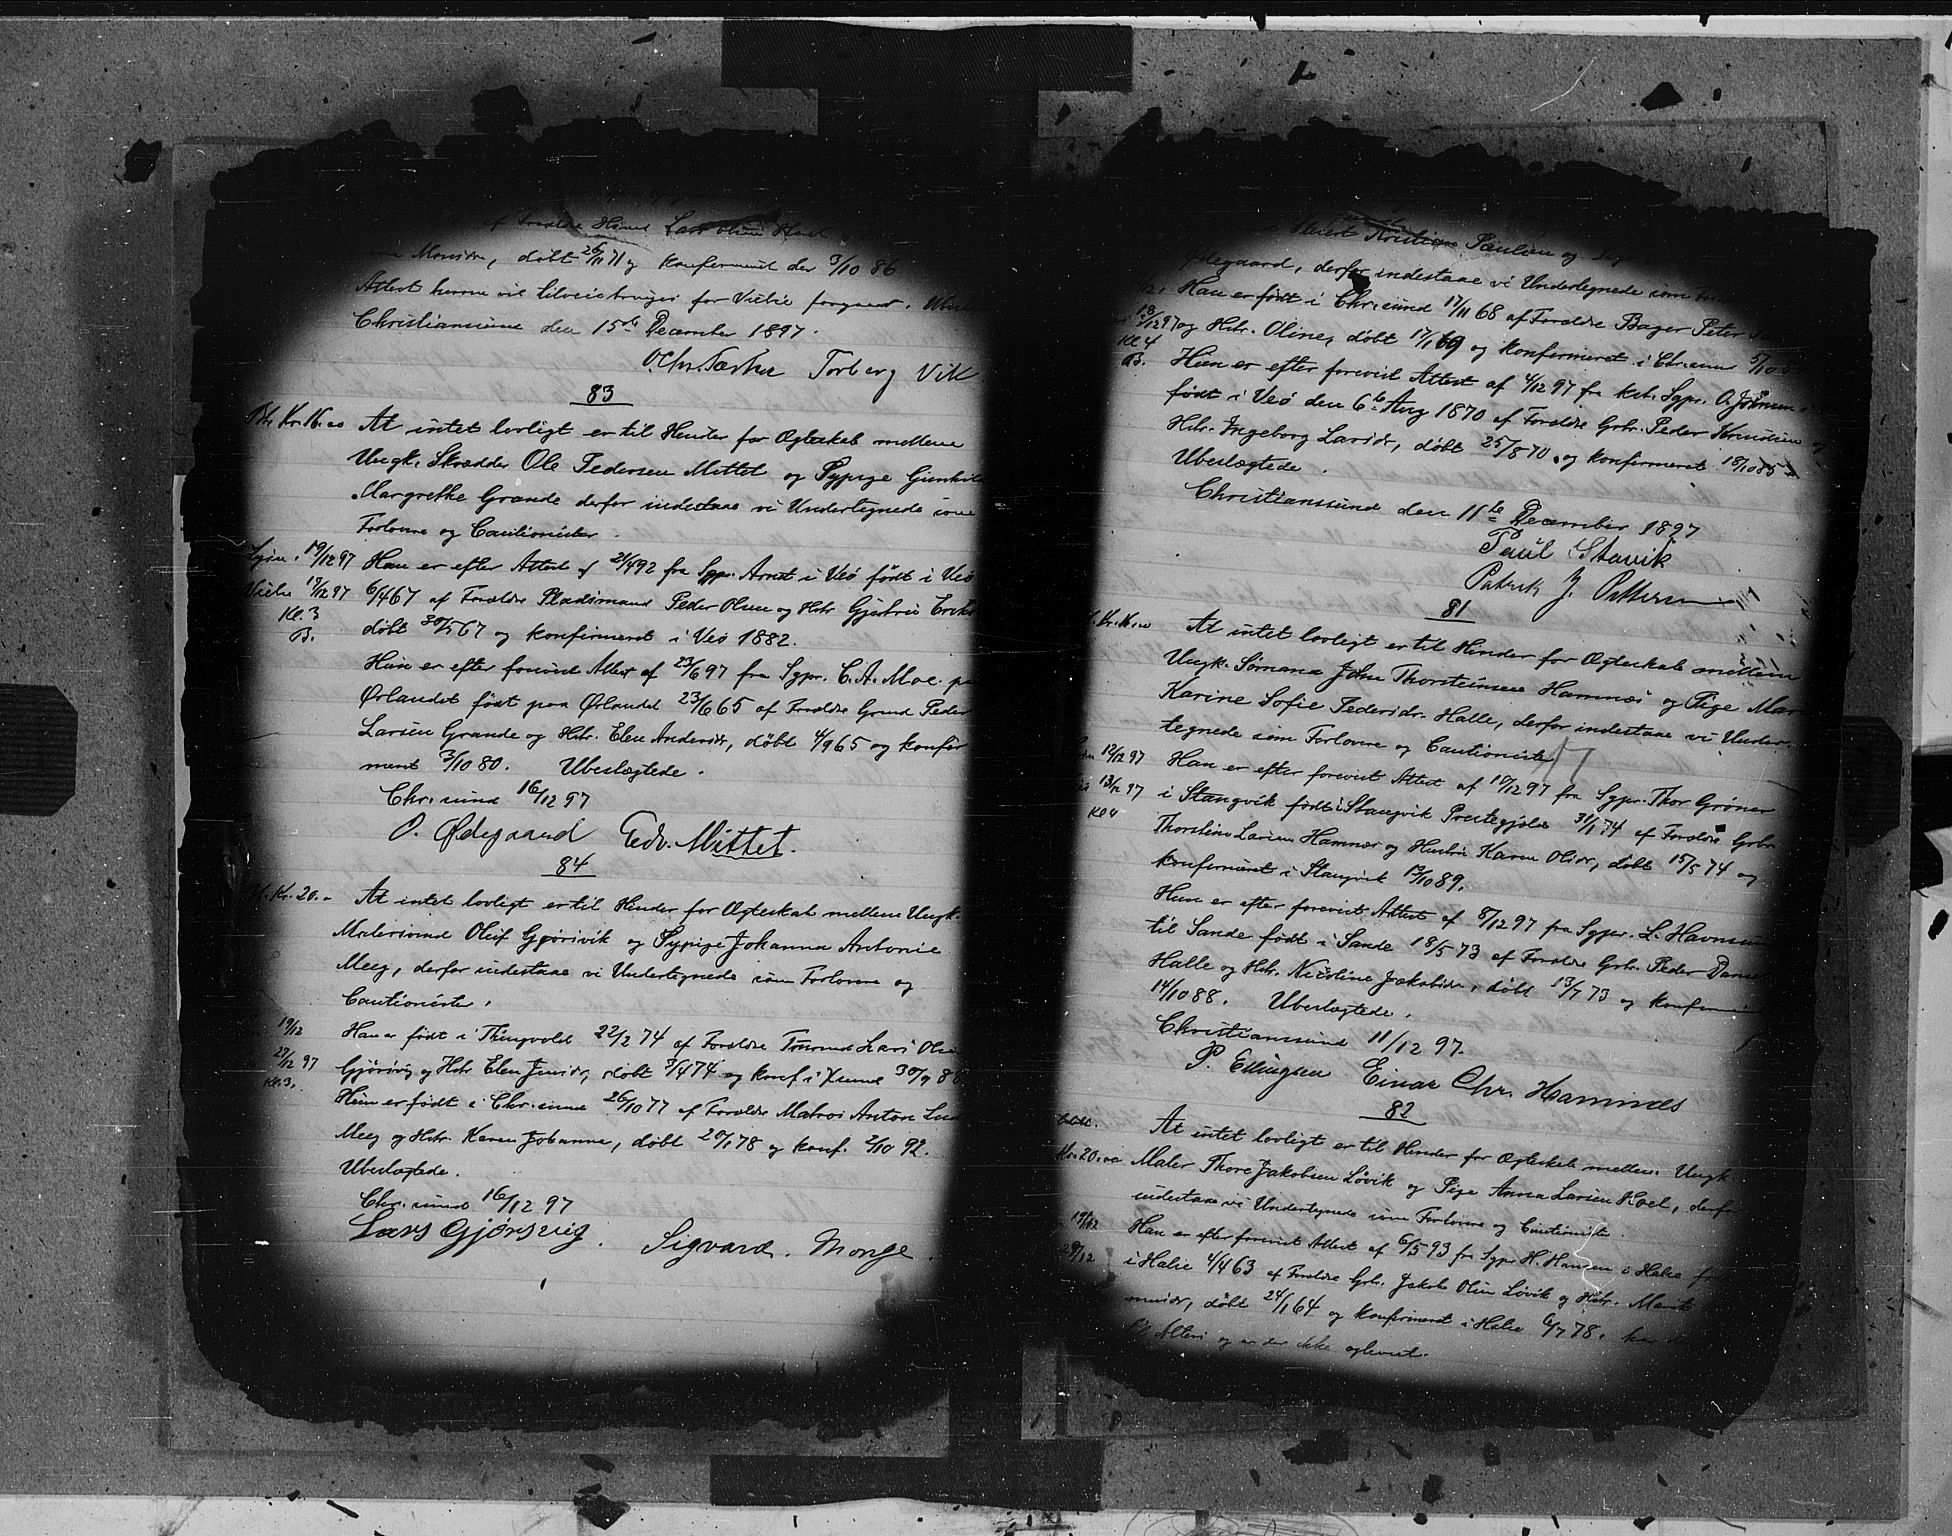 af Forældre Lars Olsen Hoel
døbt 26/11 71 og konfirmeret den 3/10 86
Attest herom vil tilveiebringes før Vielse foregaar.
Christianssund den 15de December 1897.
Torberg Vik
83
Bt. Kr. 16.00 At intet lovligt er til Hinder for Ægteskab mellem
Ungk. Skrædder Ole Pedersen Mittet og Sypige Gunhild
Margrethe Grande derfor indestaae vi Undertegnede som
Forlovere og Cautionister.
Lysn. 19/12 97 Han er efter Attest af 21/4 92 fra Sgpr. i Veö født i Veö
Vielse 19/12 97 6/4 67 af Forældre Pladsmand Peder Olsen og Hstr
Kl. 3 døbt 30/5 67 og konfirmeret i Veö 1882.
B.
Hun er efter forevist Attest af 23/6 97 fra Sgpr. C. A. Moe. paa
Ørlandet født paa Ørlandet 23/6 65 af Forældre Grmd Peder
Larsen Grande og Hstr. Elen Andersdr, døbt 4/9 65 og konfir
meret 3/10 80. Ubeslægtede.
Chr.sund 16/12 97
O. Ødegaard Edv. Mittet.
84
Kr. 20.- At intet lovligt er til Hinder for Ægteskab mellem Ungk.
Malersvend Oluf Gjørsvik og Sypige Johanna Antonie
Meeg, derfor indestaae vi Undertegnede som Forlovere og
Cautionister.
19/12 Han er født i Thingvold 22/2 74 af Forældre Lars Olsen
27/12 97 Gjørsvig og Hstr Elen Jensdr, døbt 3/4 74 og konf. i 30/9 88
Kl. 3. Hun er født i Chr.sund 26/10 77 af Forældre Matros Anton
Meeg og Hstr. Karen Johanna, døbt 20/1 78 og konf. 2/10 92.
Ubeslægtede.
Chr.sund 16/12 97
Lars Gjørsvig. Sigvard. Monge.
Kristian Paulsen og
Ødegaard, derfor indestaae vi Undertegnede som
Han er født i Chr.sund 17/11 68 af Forældre Bager Peter
13/12 97 og Hstr. Oline, døbt 17/1 69 og konfirmeret i Chr.sund
Kl 4 Hun er efter forevist Attest af 4/12 97 fra kst. Sgpr. O. Johnsen
B. født i Veö den 6te Aug 1870 af Forældre Grbr. Peder Knudsen og
Hstr. Ingeborg Larsdr, døbt 25/8 70. og konfirmeret 18/10 85
Ubeslægtede.
Christianssund den 11te December 1897
Paul Stavik
Patrik J. Pettersen
81
Kr. 16.00 At intet lovligt er til Hinder for Ægteskab mellem
Ungk. Sømand John Thorsteinsen Hamnes og Pige Mar
Karine Sofie Pedersdr. Halle, derfor indestaae vi Under
tegnede som Forlovere og Cautionister
12/12 97 Han er efter forevist Attest af 10/12 97 fra Sgpr. Thor Grøner
13/12 97 i Stangvik født i Stangvik Prestegjæld 31/1 74 af Forældre Grbr.
Kl 4 Thorstein Larsen Hamnes og Hustru Karen Olsdr, døbt 15/5 74 og
konfirmeret i Stangvik 13/10 89.
Hun er efter forevist Attest af 8/12 97 fra Sgpr. L. Havnsund
til Sande født i Sande 18/5 73 af Forældre Grbr. Peder
Halle og Hstr. Nicoline Jakobsdr, døbt 13/7 73 og konfirmeret
14/10 88. Ubeslægtede.
Christianssund 11/12 97.
P. Ellingsen Einar Chr. Hamnes
82
Kr. 20.00 At intet lovligt er til Hinder for Ægteskab mellem Ungk.
Maler Thore Jakobsen Løvik og Pige Anna Larsen Hoel, derfor
indestaae vi Undertegnede som Forlovere og Cautionister.
19/12 Han er efter forevist Attest af 6/5 93 fra Sgpr H. Hansen i Halse
29/12 i Halse 4/4 63 af Forældre Grbr. Jakob Olsen Løvik og Hstr. Marit
døbt 24/1 64 og konfirmeret i Halse 6/7 78.
og er der ikke oplevert.